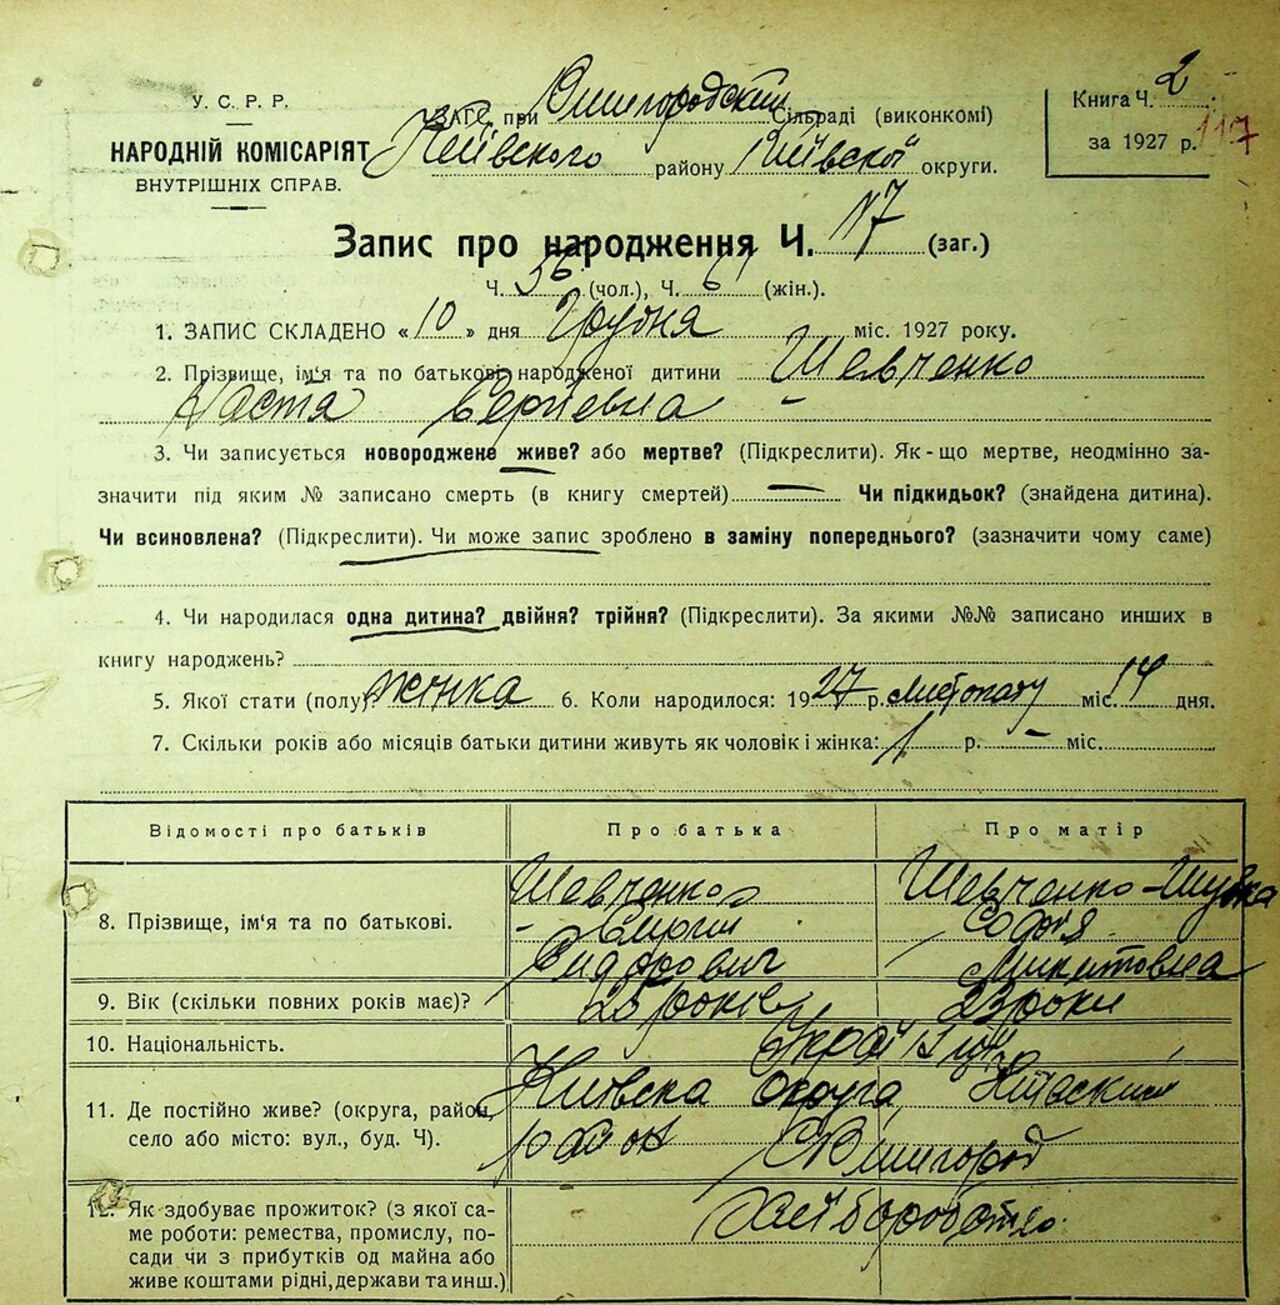 У. С. Р. Р.
НАРОДНІЙ КОМІСАРІЯТ
ВНУТРІШНІХ СПРАВ.
ЗАГС. при Вишгородский Сільраді (виконкомі)
Київского району Київскої округи.
Книга Ч. 2
за 1927 р. 117
Запис про народження Ч. 117 (заг.)
Ч. 56 (чол.), Ч. 61 (жін.).
1. ЗАПИС СКЛАДЕНО « 10 » дня Грудня міс. 1927 року.
2. Прізвище, ім'я та по батькові народженої дитини Шевченко
Настя Сергіевна -
3. Чи записується новороджене живе? або мертве? (Підкреслити). Як-що мертве, неодмінно за-
значити під яким № записано смерть (в книгу смертей) — Чи підкидьок? (знайдена дитина).
Чи всиновлена? (Підкреслити). Чи може запис зроблено в заміну попереднього? (зазначити чому саме)
4. Чи народилася одна дитина? двійня? трійня? (Підкреслити). За якими №№ записано инших в
книгу народжень?
5. Якої стати (полу)? жінка 6. Коли народилося: 1927 р. листопаду міс. 14 дня.
7. Скільки років або місяців батьки дитини живуть як чоловік і жінка: 1 р. — міс.
Відомості про батьків Про батька Про матір
8. Прізвище, ім'я та по батькові.
Шевченко
Сидорович
Шевченко-
Софія
Микитовна
9. Вік (скільки повних років має)? 25 років 23 роки
10. Національність. Українці
11. Де постійно живе? (округа, район,
село або місто: вул., буд. Ч).
Київска округа Київский
район С Вишгород
12. Як здобуває прожиток? (з якої са-
ме роботи: ремества, промислу, по-
сади чи з прибутків од майна або
живе коштами рідні, держави та инш.)
Хліборобство.